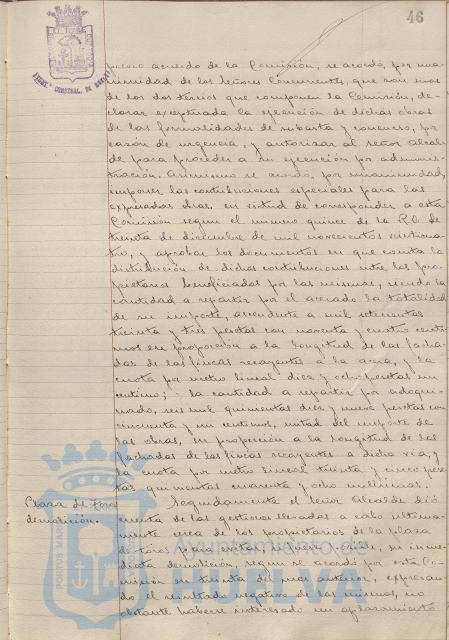 46
AYUNT. CONSTNAL. DE HUELVA
previo acuerdo de la Comisión, se acordó, por una-
nimidad de los Señores Concurrentes, que son mas
de los dos tercios que componen la Comisión, de-
clarar exceptuada la ejecución de dichas obras
de las formalidades de subasta y concurso, por
razón de urgencia, y autorizar al señor Alcal-
de para proceder a su ejecución por adminis-
tración. Asimismo se acordó, por unanimidad,
imponer las contribuciones especiales para las
expresadas obras, en virtud de corresponder a esta
Comisión segun el número quince de la R.O. de
treinta de diciembre de mil novecientos veinticua-
tro, y aprobar los documentos en que consta la
distribución de dichas contribuciones entre los pro-
pietarios beneficiados por las mismas, siendo la
cantidad a repartir por el acerado la totalidad
de su importe, ascendente a mil setecientas
treinta y tres pesetas con noventa y cuatro centi-
mos en proporción a la longitud de las facha-
das de las fincas recayentes a la acera, y la
cuota por metro lineal diez y ocho pesetas un
centimo; la cantidad a repartir por adoqui-
nado, seis mil quinientas diez y nueve pesetas con
cincuenta y un centimos, mitad del importe de
las obras, en proporción a la longitud de las
fachadas de las fincas recayentes a dicha via, y
la cuota por metro lineal treinta y cinco pese-
tas quinientas cuarenta y ocho milésimas.
Plaza de toros
demolición.
Seguidamente el señor Alcalde dió
cuenta de las gestiones llevadas a cabo ultima-
mente cerca de los propietarios de la plaza
de toros para evitar, si fuera posible, su inme-
diata demolición, segun se acordó por esta Co-
misión en treinta del mes anterior, expresan-
do el resultado negativo de las mismas, no
obstante haberse interesado un aplazamiento
Ayuntamiento de
HUELVA
PORTUS MARIS